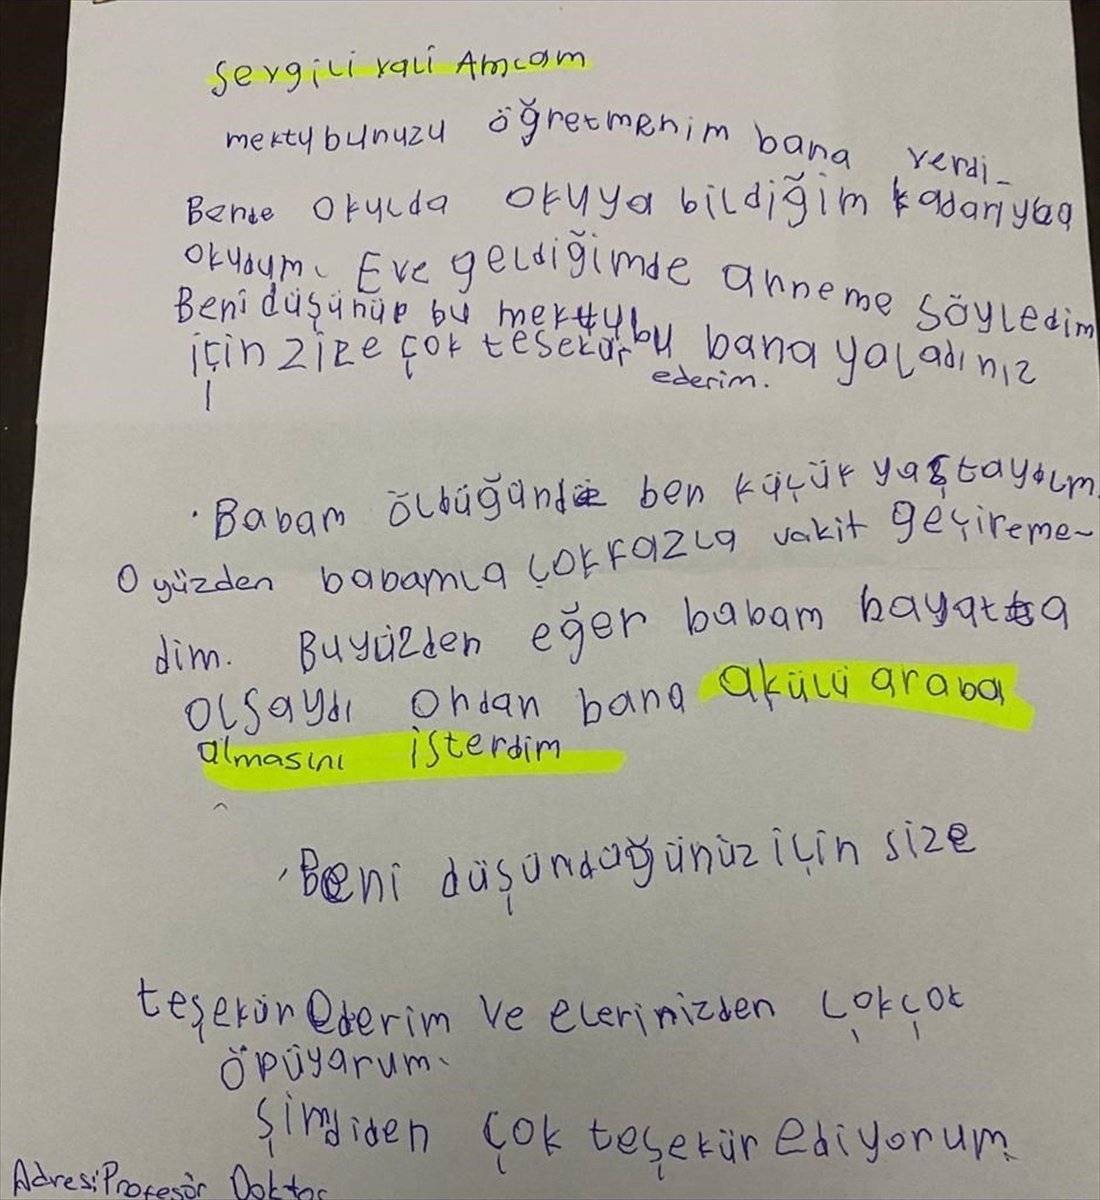 Sevgili vali Amcam
mektubunuzu öğretmenim bana verdi.
Bende okulda okuya bildiğim kadarıyla
okudum. Eve geldiğimde anneme söyledim
Beni düşünüp bu mektubu bana yoladınız
için zize çok tesekür ederim.
Babam öldüğünde ben küçük yaştaydım.
O yüzden babamla çok fazla vakit geçireme-
dim. Bu yüzden eğer babam hayatta
olsaydı ondan bana akülü araba
almasını isterdim
Beni düşündüğünüz için size
teşekür ederim ve elerinizden çok çok
öpüyorum.
Şimdiden çok teşekür ediyorum.
Adres: Profesör Doktor